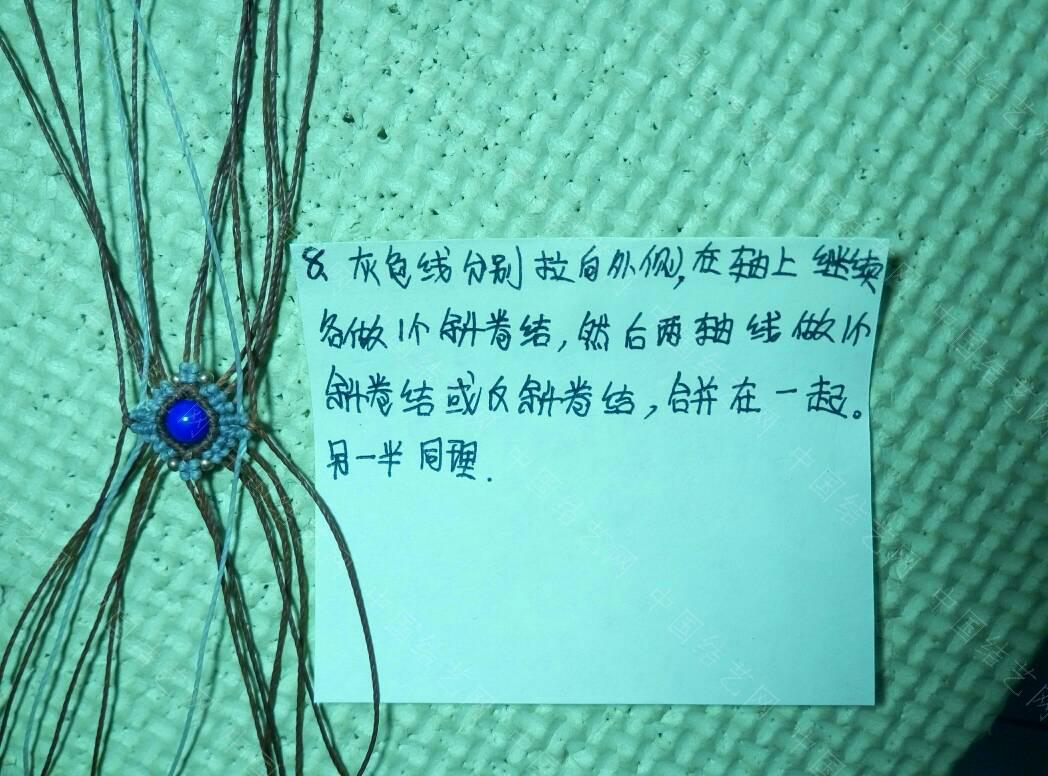 8、灰色线分别拉向外侧,在轴上继续
各做1个斜卷结,然后两轴线做1个
斜卷结或反斜卷结,合并在一起。
另一半同理.
中国结艺网